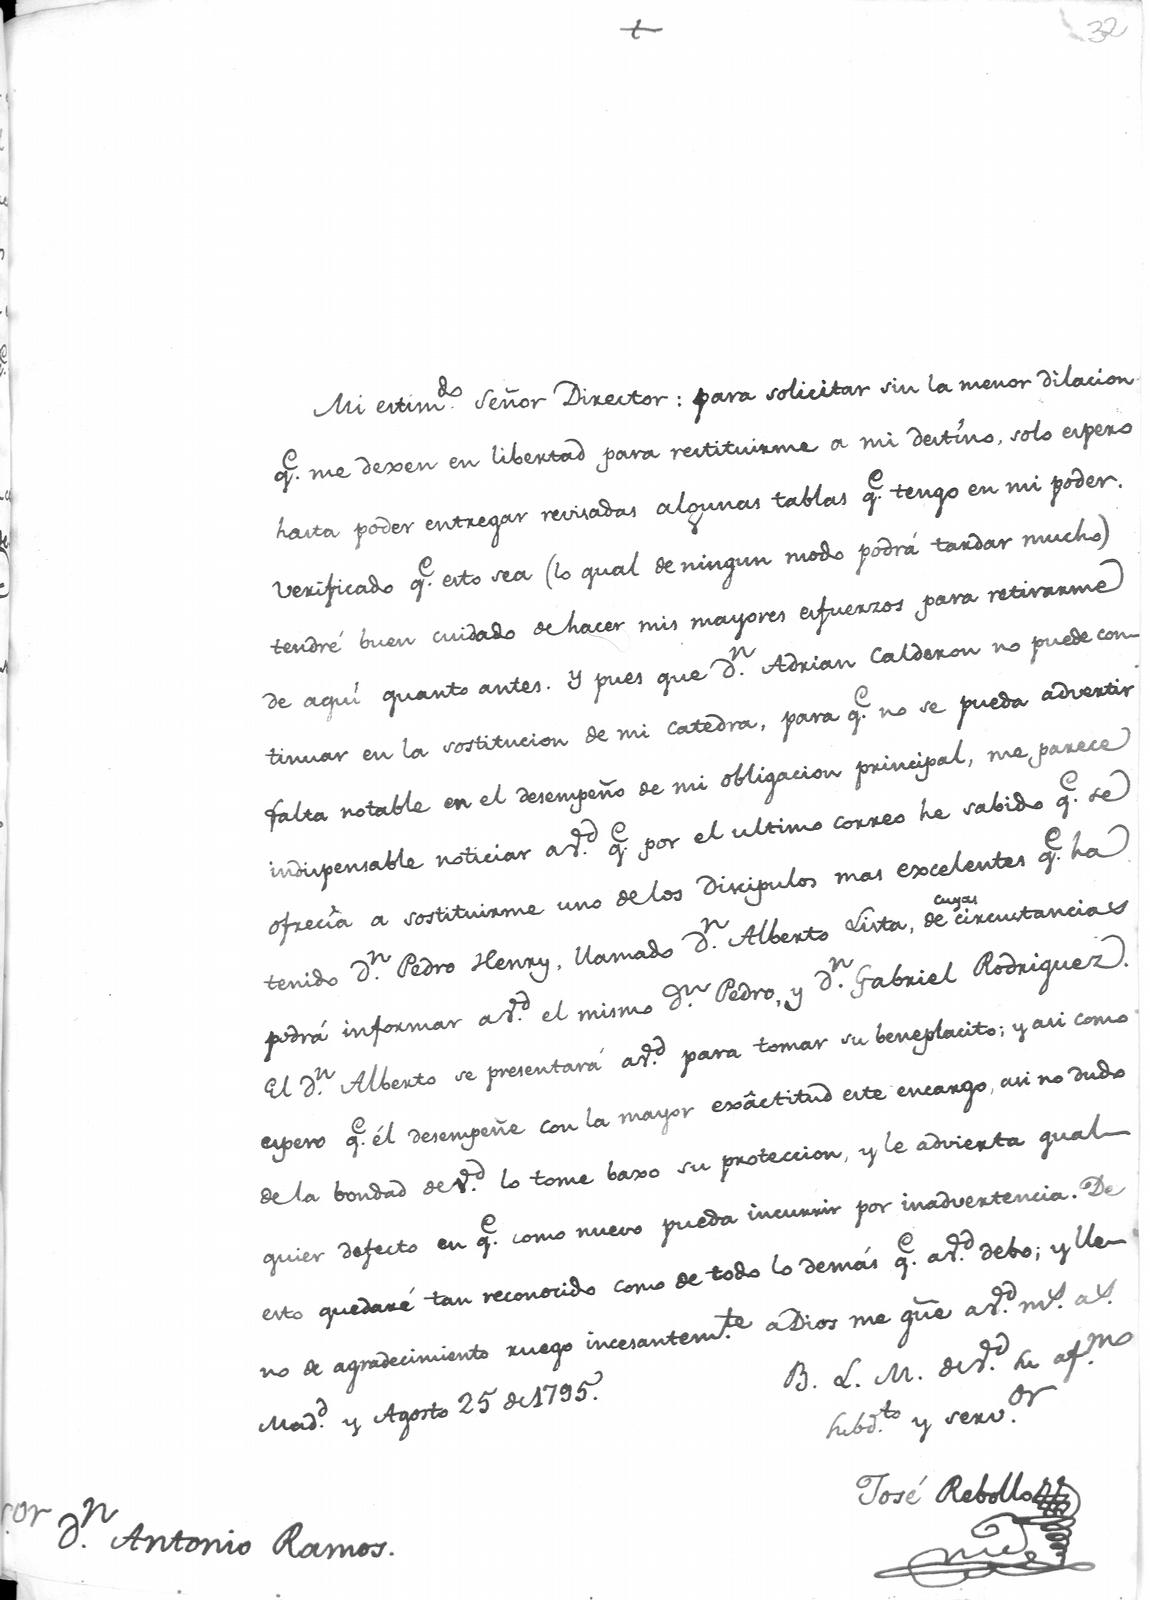 32
Mi estim.do Señor Director: para solicitar sin la menor dilacion
q.e me dexen en libertad para restituirme a mi destino, solo espero
hasta poder entregar revisadas algunas tablas q.e tengo en mi poder.
Verificado q.e esto sea (lo qual de ningun modo podrá tardar mucho)
tendré buen cuidado de hacer mis mayores esfuerzos para retirarme
de aquí quanto antes. Y pues que D.n Adrian Calderon no puede con-
tinuar en la sostitucion de mi Catedra, para q.e no se pueda advertir
falta notable en el desempeño de mi obligacion principal, me parece
indispensable noticiar a V.d q.e por el ultimo correo he sabido q.e se
ofrecía a sostituirme uno de los Discipulos mas excelentes q.e ha
tenido D.n Pedro Henry, llamado D.n Alberto Lista, de cuyas circunstancias
podrá informar a V.d el mismo D.n Pedro, y D.n Gabriel Rodriguez.
El D.n Alberto se presentará a V.d para tomar su beneplacito; y asi como
espero q.e él desempeñe con la mayor exâctitud este encargo, asi no dudo
de la bondad de V.d lo tome baxo su proteccion, y le advierta qual-
quier defecto en q.e como nuevo pueda incurrir por inadvertencia. De
esto quedaré tan reconocido como de todo lo demás q.e a V.d debo; y lle-
no de agradecimiento ruego incesantem.te a Dios me gũe a V.d m.s a.s
Mad.d y Agosto 25 de 1795.
B. L. M. de V.d su af.mo
subd.to y serv.or
José Rebollo
S.or D.n Antonio Ramos.